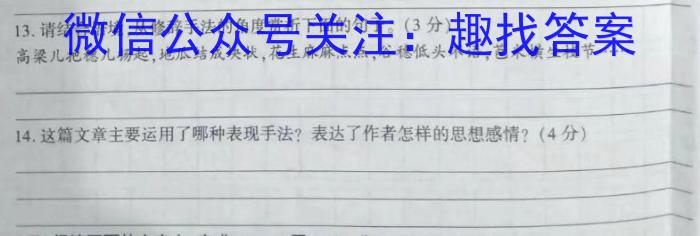 微信公众号关注：趣找答案
13. 请结 修辞手法的角度赏析下 的句子。(3分)
高粱儿把穗儿扬起,地瓜结成块状,花生麻麻点点,谷穗低头不语,芭米横生枝节
14. 这篇文章主要运用了哪种表现手法？表达了作者怎样的思想感情？(4分)